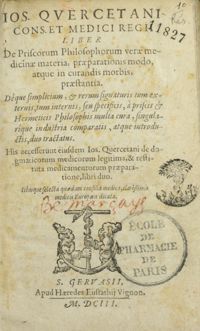 IOS. QVERCETANI
CONS. ET MEDICI REGII
LIBER
De Priscorum Philosophorum veræ medicinæ materia, præparationis modo,
atque in curandis morbis,
præstantia.
Déque simplicium, & rerum signaturis tum externis, tum internis, seu specificis, à priscis &
Hermeticis Philosophis multa cura, singularique industria comparatis, atque introductis, duo tractatus.
His accesserunt eiusdem Ios. Quercetani de dogmaticorum medicorum legitima, & restituta medicamentorum præparatione, libri duo.
S. GERVASII,
Apud Hæredes Eustathij Vignon.
M. DCIII.
11827
ÉCOLE
DE
PHARMACIE
DE
PARIS